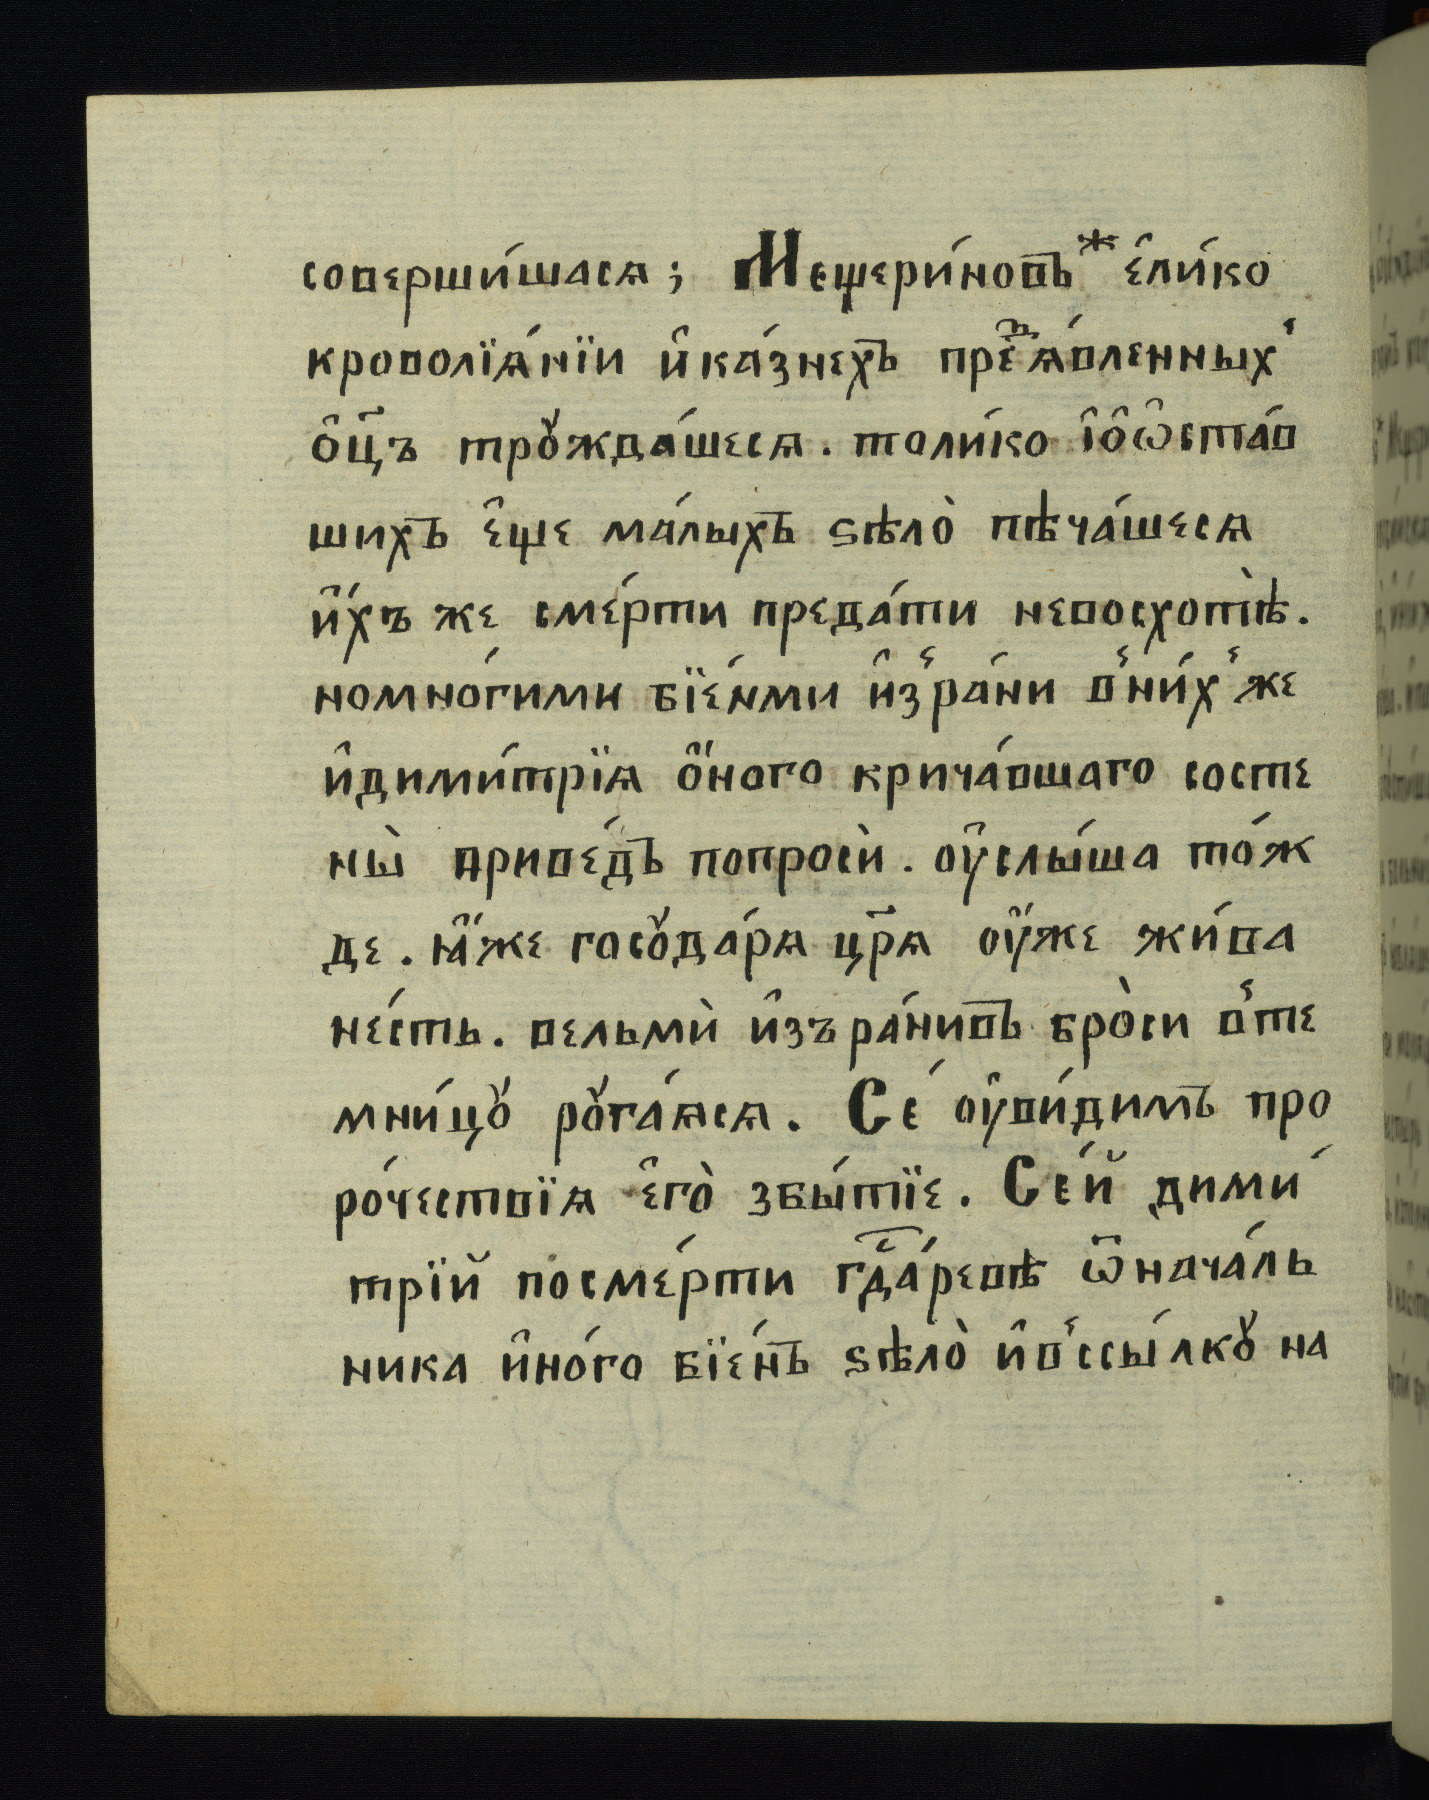 соверши́шася; Мещери́новъ ⷤ е҆ли́ко
кроволїѧ́нїи и҆ка́знехъ пре́ⷣѧ́вленных̾
ѻ҆ц҃ъ трꙋжда́шесѧ. толи́ко і҆ѻ҆ѡ҆ста́в
шихъ є҆ще ма́лыхъ ѕѣлѡ̀ пѣча́шесѧ
и҆́хъ же сме́рти преда́ти невосхотѣ̀.
номно́гими бїе́нми и҆з̾ра́ни в̾ни́х̾ же
и҆дими́трїѧ ѻ҆́ного крича́вшаго состе
ны̀ приве́дъ попросѝ. оу҆слы́ша то́ж
де. ꙗ҆́же госꙋда́рѧ цр҃ѧ оу҆́же жи́ва
не́сть. вельмѝ и҆зъра́нивъ бро̀си в̾те
мни́цꙋ рꙋга́ѧсѧ. Се́ оу҆ви́димъ про
ро́чествїѧ є҆го̀ збы́тїе. Се́й дими́
трїй посме́рти гдⷭ҇а́ревѣ ѿнача́ль
ника и҆но́го бїе́нъ ѕѣло̀ и҆в̾ссы́лкꙋ на